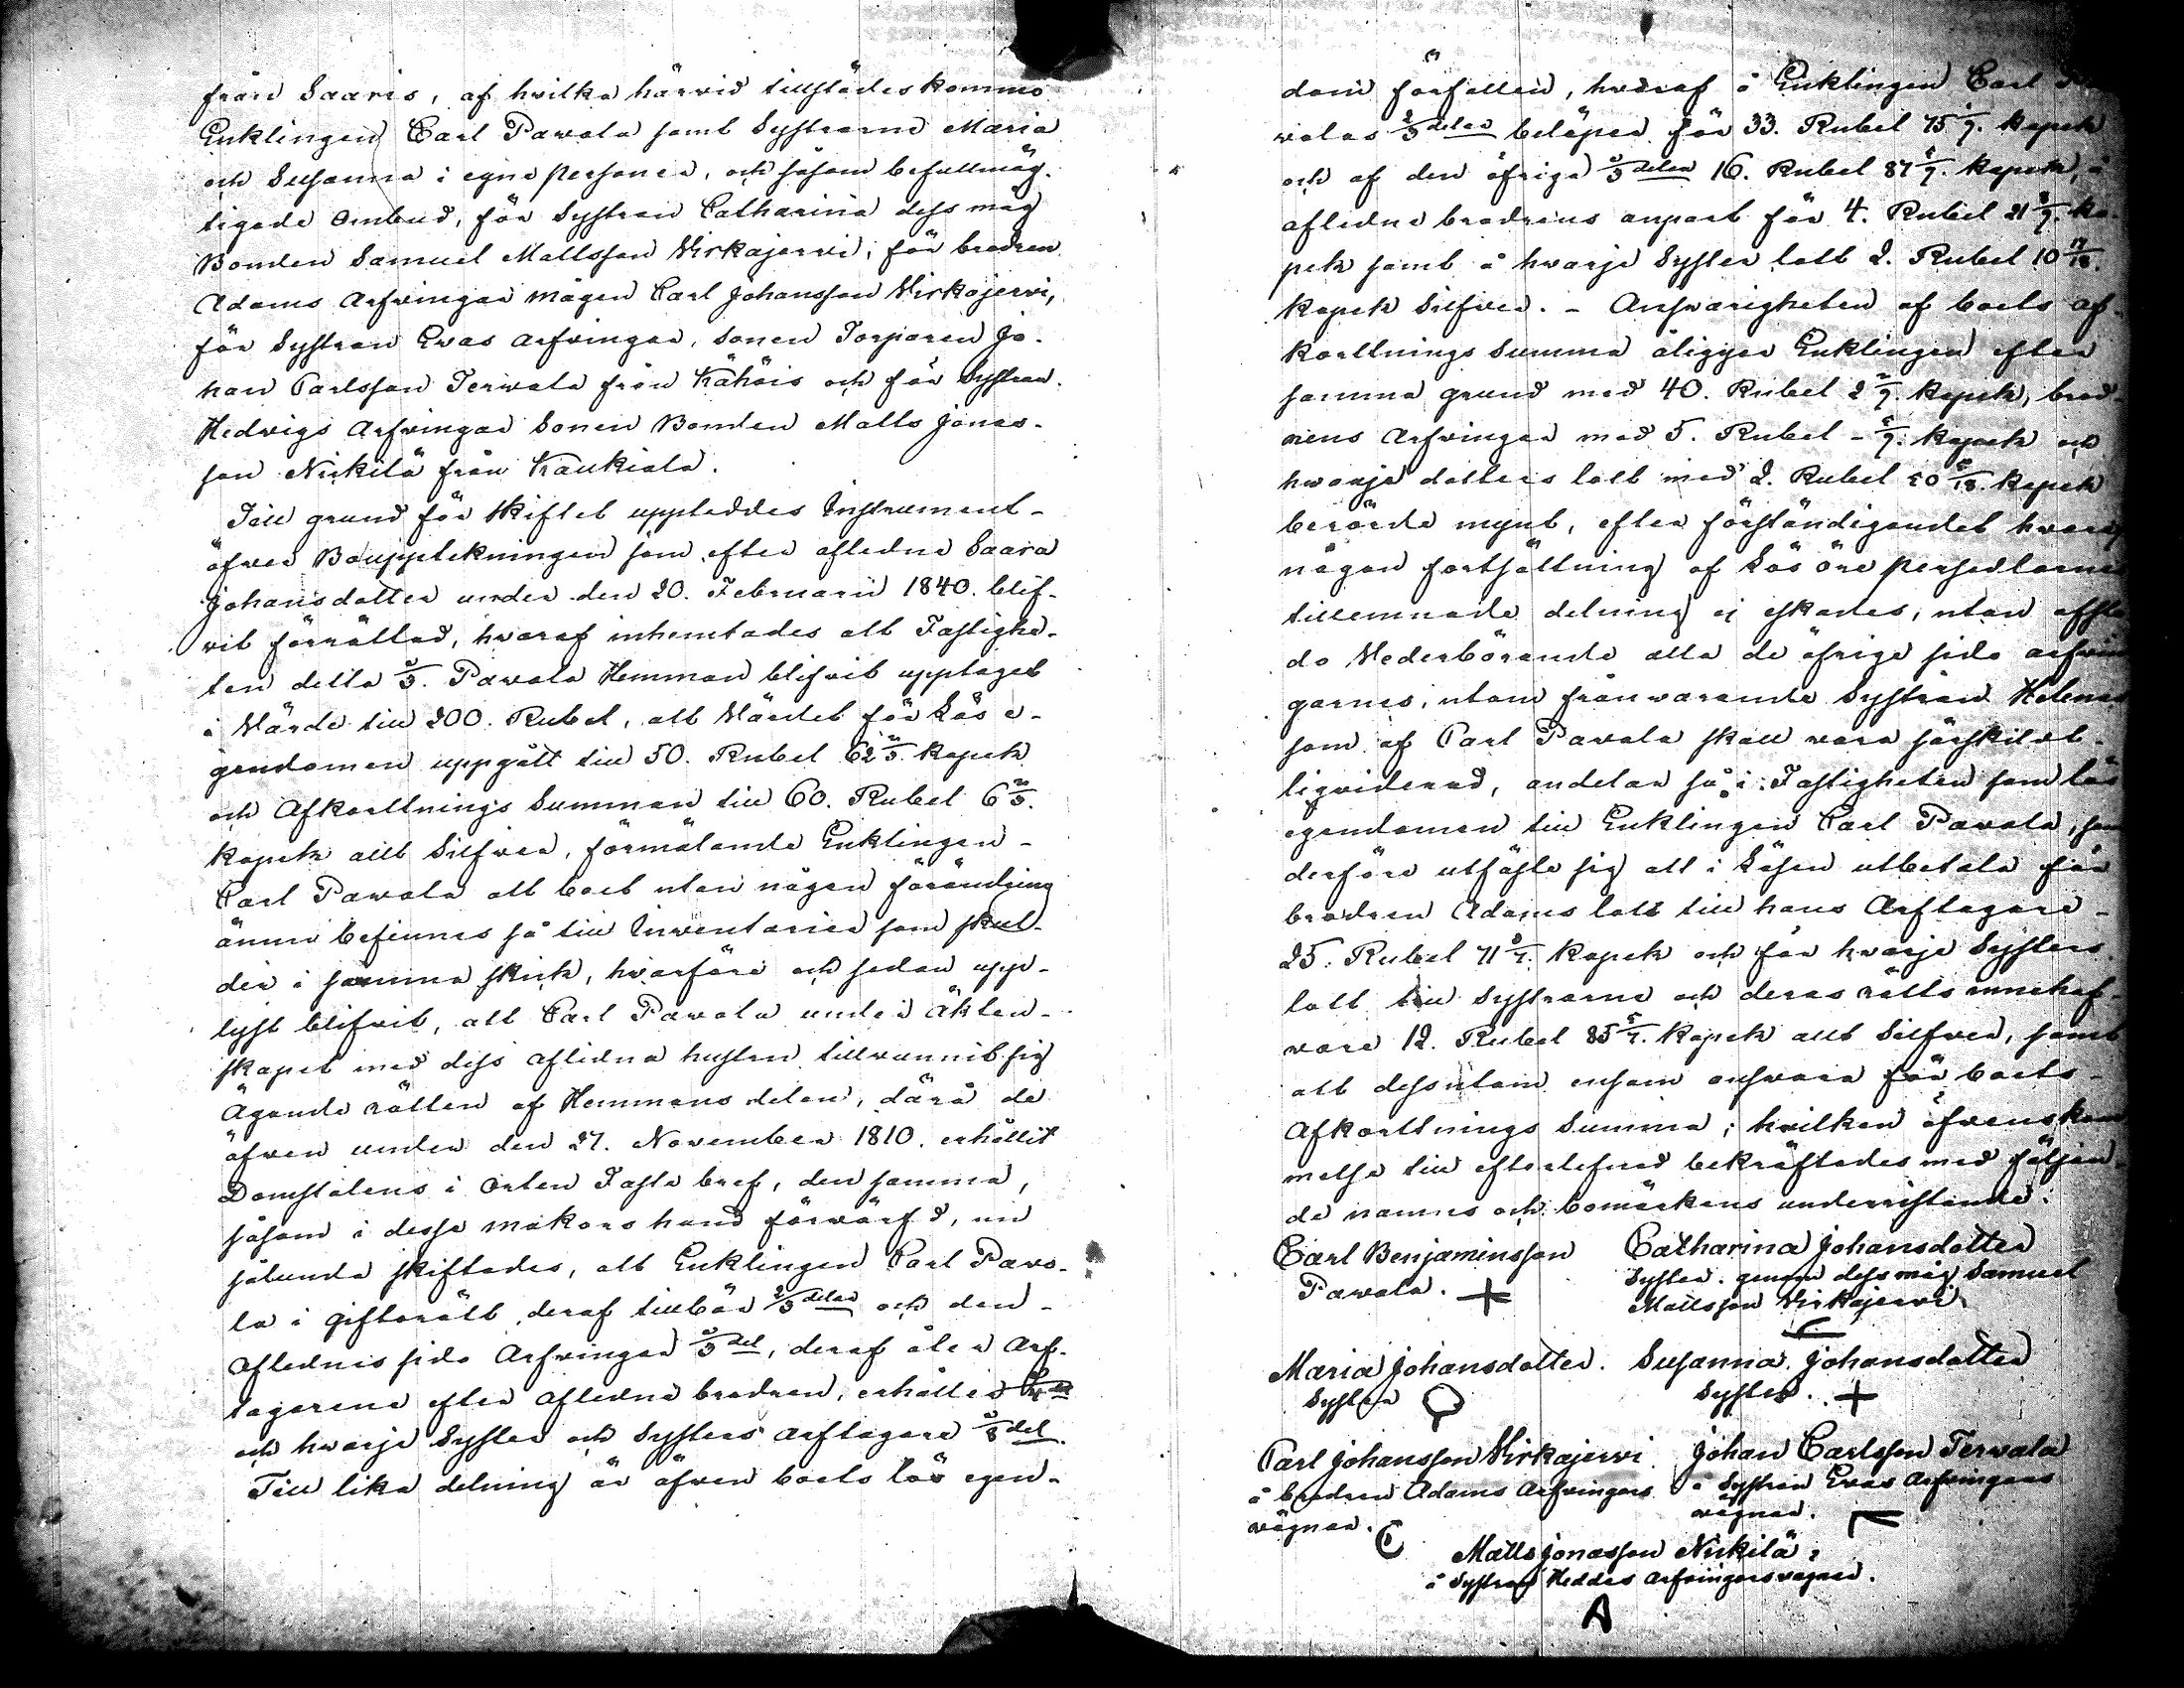 från Saaris, af hvilka härvid tillstädeskommo
Enklingen Carl Pawola samt Systrarne Maria
och Susanna i egne personer, och såsom befullmäg-
tigade Ombud, för Systran Catharina dess måg
Bonden Samuel Mattsson Wirkajerwi, för brodren
Adams Arfvingar mågen Carl Johansson Wirkajerwi,
för Systran Evas Arfvingar, sonen Torparen Jo-
han Carlsson Terwala från Kähöis och för Systran
Hedvigs Arfvingar Sonen Bonden Matts Jonas-
son Nickilä från Kaukiala.
Till grund för skiftet uppleddes Instrument-
öfver Bouppteckningen som efter aflidne Saara
Johansdotter under den 20. Februarii 1840. blif-
vit förrättad, hvaraf inhemtades att Fastighe-
ten detta 1/3. Pawola Hemman blifvit upptaget
i Värde till 200. Rubel, att Värdet för Lös e-
gendomen uppgått till 50. Rubel 62 2/3. kopek
och Afkortnings Summan till 60. Rubel 6 2/3.
kopek allt Silfver, förmälande Enklingen-
Carl Pawola att boet utan någon förändring
ännu befinnes så till Inventarier som skul-
der i samma skick, hvarföre och sedan upp-
lyst blifvit, att Carl Pawola under Äkten-
skapet med dess aflidna hustru tillvunnit sig
Äganderätten af Hemmans delen, därå de
äfven under den 27. November 1810. erhållit
Domstolens i Orten Fasta bref, den samma,
såsom i desse makors hand förvärfd, nu
sålunda skiftades, att Enklingen Carl Pawo-
la i giftorätt deraf tillbör 2/3 delar och den-
aflednes sido Arfvingar 1/3 del, deraf åter Arf-
tagarene efter aflidne brodren, erhåller
och hvarje Syster och Systers arftagare 1/8 del.
Till lika delning är äfven boets lös egen-
dom förfallen, hvaraf å Enklingen Carl Pa
volas 2/3 delar belöper för 33. Rubel 75 1/7. kopek
och af den öfriga 1/3 delen 16. Rubel 87 6/7. kopek, å
aflidne brodrens anpart för 4. Rubel 21 3/7. ko-
pek samt å hvarje Syster lott 2. Rubel 10
kopek Silfver. - Ansvarigheten af boets af-
kortnings Summa åligger Enklingen efter
samma grund med 40. Rubel 2 2/7. kopek, brod-
rens Arfvingar med 5. Rubel - 6/7. kopek och
hvarje dotters lott med 2. Rubel 50 kopek
berörde mynt, efter förständigandet hvarej
någon fortsättning af Lösöre persedlarnes
tillemnade delning ej eskades, utan affstå-
do Wederbörande alla de öfrige sido arfvin-
garnes, utom frånvarande Systran Helenas
som af Carl Pawola skall vara särskilt
liqviderad, andelar så i Fastigheten som lös
egendomen till Enklingen Carl Pawola, som
derföre utfäste sig att i Lösen utbetala för
brodren Adams lott till hans Arftagare-
25. Rubel 71 3/7. kopek och för hvarje Systers
lott till Systrarne och deras rätts innehaf-
vare 12. Rubel 85 5/7. kopek allt Silfver, samt
att dessutom ensam ansvara för boets-
Afkortnings Summa; hvilken öfverskom
melse till efterlefnad bekräftades med följan-
de namns och bomärkens underristande.
Carl Benjaminsson
Pawola. +
Catharina Johansdotter
Syster. genom dess måg Samuel
Mattsson Wirkajerwi
Maria Johansdotter.
Syster
Susanna Johansdotter
Syster. +
Carl Johansson Wirkajerwi
å brodren Adams Arfvingars
vägnar.
Johan Carlsson Terwala
å Systran Evas Arfvingars
vägnar.
Matts Jonasson Nickilä
å Systran Heddas Arfvingars vägnar.